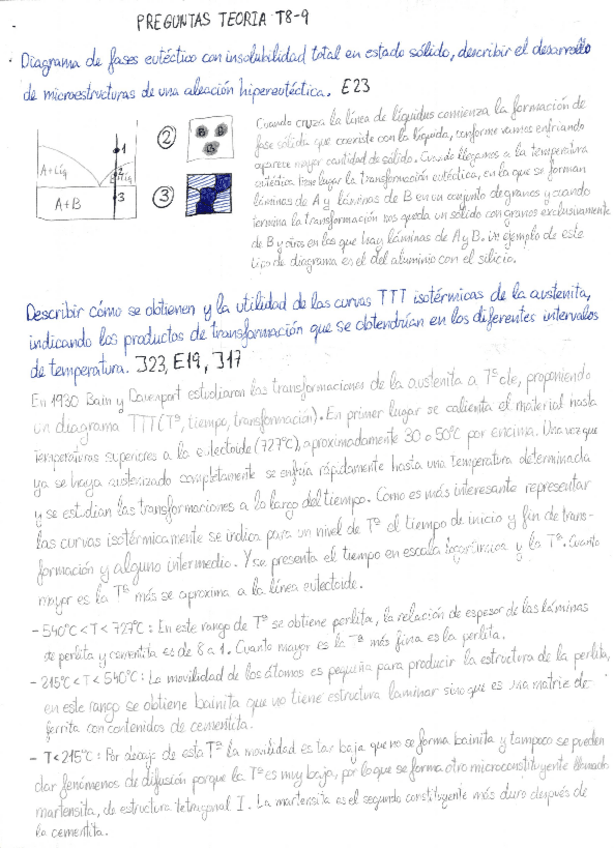 PREGUNTAS TEORIA T8-9
· Diagrama de fases eutéctico con insolubilidad total en estado sólido, describir el desarrollo
de microestructuras de una aleación hipereutéctica. E23
Cuando cruza la línea de líquidus comienza la formación de
fase sólida que coexiste con la líquida, conforme vamos enfriando
aparece mayor cantidad de sólido. Cuando llegamos a la temperatura
eutéctica tiene lugar la transformación eutéctica, en la que se forman
láminas de A y láminas de B en un conjunto de granos y cuando
termina la transformación nos queda un sólido con granos exclusivamente
de B y otros en los que hay láminas de A y B. Un ejemplo de este
tipo de diagrama es el del aluminio con el silicio.
A+Líq
A+B
1
2
3
②
B B
B
③
Describir cómo se obtienen y la utilidad de las curvas TTT isotérmicas de la austenita,
indicando los productos de transformación que se obtendrían en los diferentes intervalos
de temperatura. J23, E19, J17
En 1930 Bain y Davenport estudiaron las transformaciones de la austenita a Tª cte, proponiendo
un diagrama TTT (Tª, tiempo, transformación). En primer lugar se calienta el material hasta
temperaturas superiores a la eutectoide (727ºC), aproximadamente 30 o 50ºC por encima. Una vez que
ya se haya austenizado completamente se enfría rápidamente hasta una temperatura determinada
y se estudian las transformaciones a lo largo del tiempo. Como es más interesante representar
las curvas isotérmicamente se indica para un nivel de Tª el tiempo de inicio y fin de trans-
formación y alguno intermedio. Y se presenta el tiempo en escala y la Tª. Cuanto
mayor es la Tª más se aproxima a la línea eutectoide.
- 540ºC < T < 727ºC: En este rango de Tª se obtiene perlita, la relación de espesor de las láminas
de perlita y cementita es de 8 a 1. Cuanto mayor es la Tª más fina es la perlita.
- 215ºC < T < 540ºC: La movilidad de los átomos es pequeña para producir la estructura de la perlita,
en este rango se obtiene bainita que no tiene estructura laminar sino que es una matriz de
ferrita con contenidos de cementita.
- T < 215ºC: Por debajo de esta Tª la movilidad es tan baja que no se forma bainita y tampoco se pueden
dar fenómenos de difusión porque la Tª es muy baja, por lo que se forma otro microconstituyente llamado
martensita, de estructura tetragonal I. La martensita es el segundo constituyente más duro después de
la cementita.